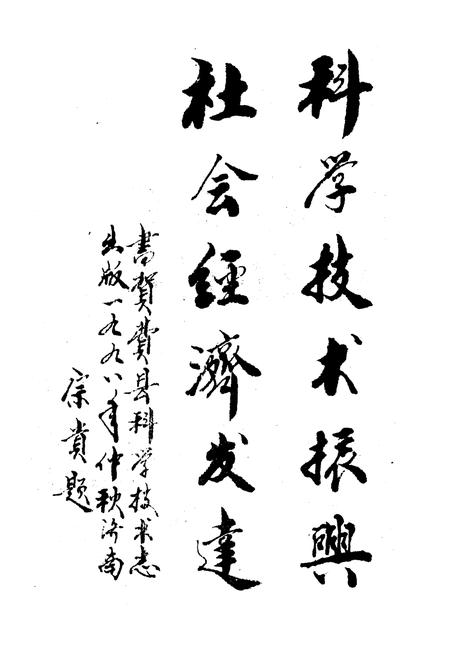 科学技术振興
社会經濟发達
書賀費县科学技术志
出版一九九八年仲秋济南
宗貴题